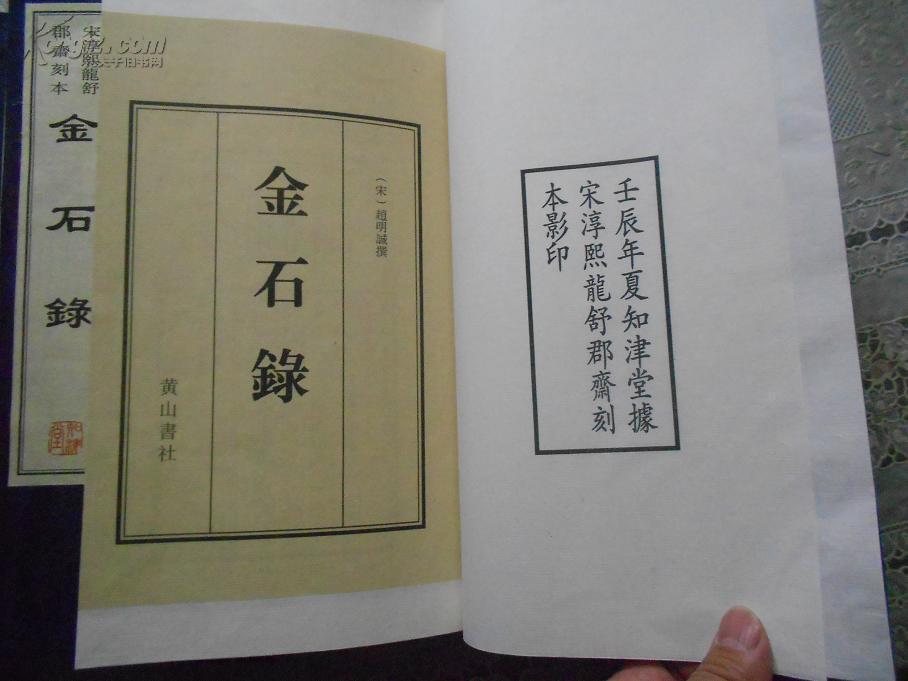 宋淳熙龍舒
郡齋刻本
金石錄
（宋）趙明誠撰
金石錄
黄山書社
壬辰年夏知津堂據
宋淳熙龍舒郡齋刻
本影印